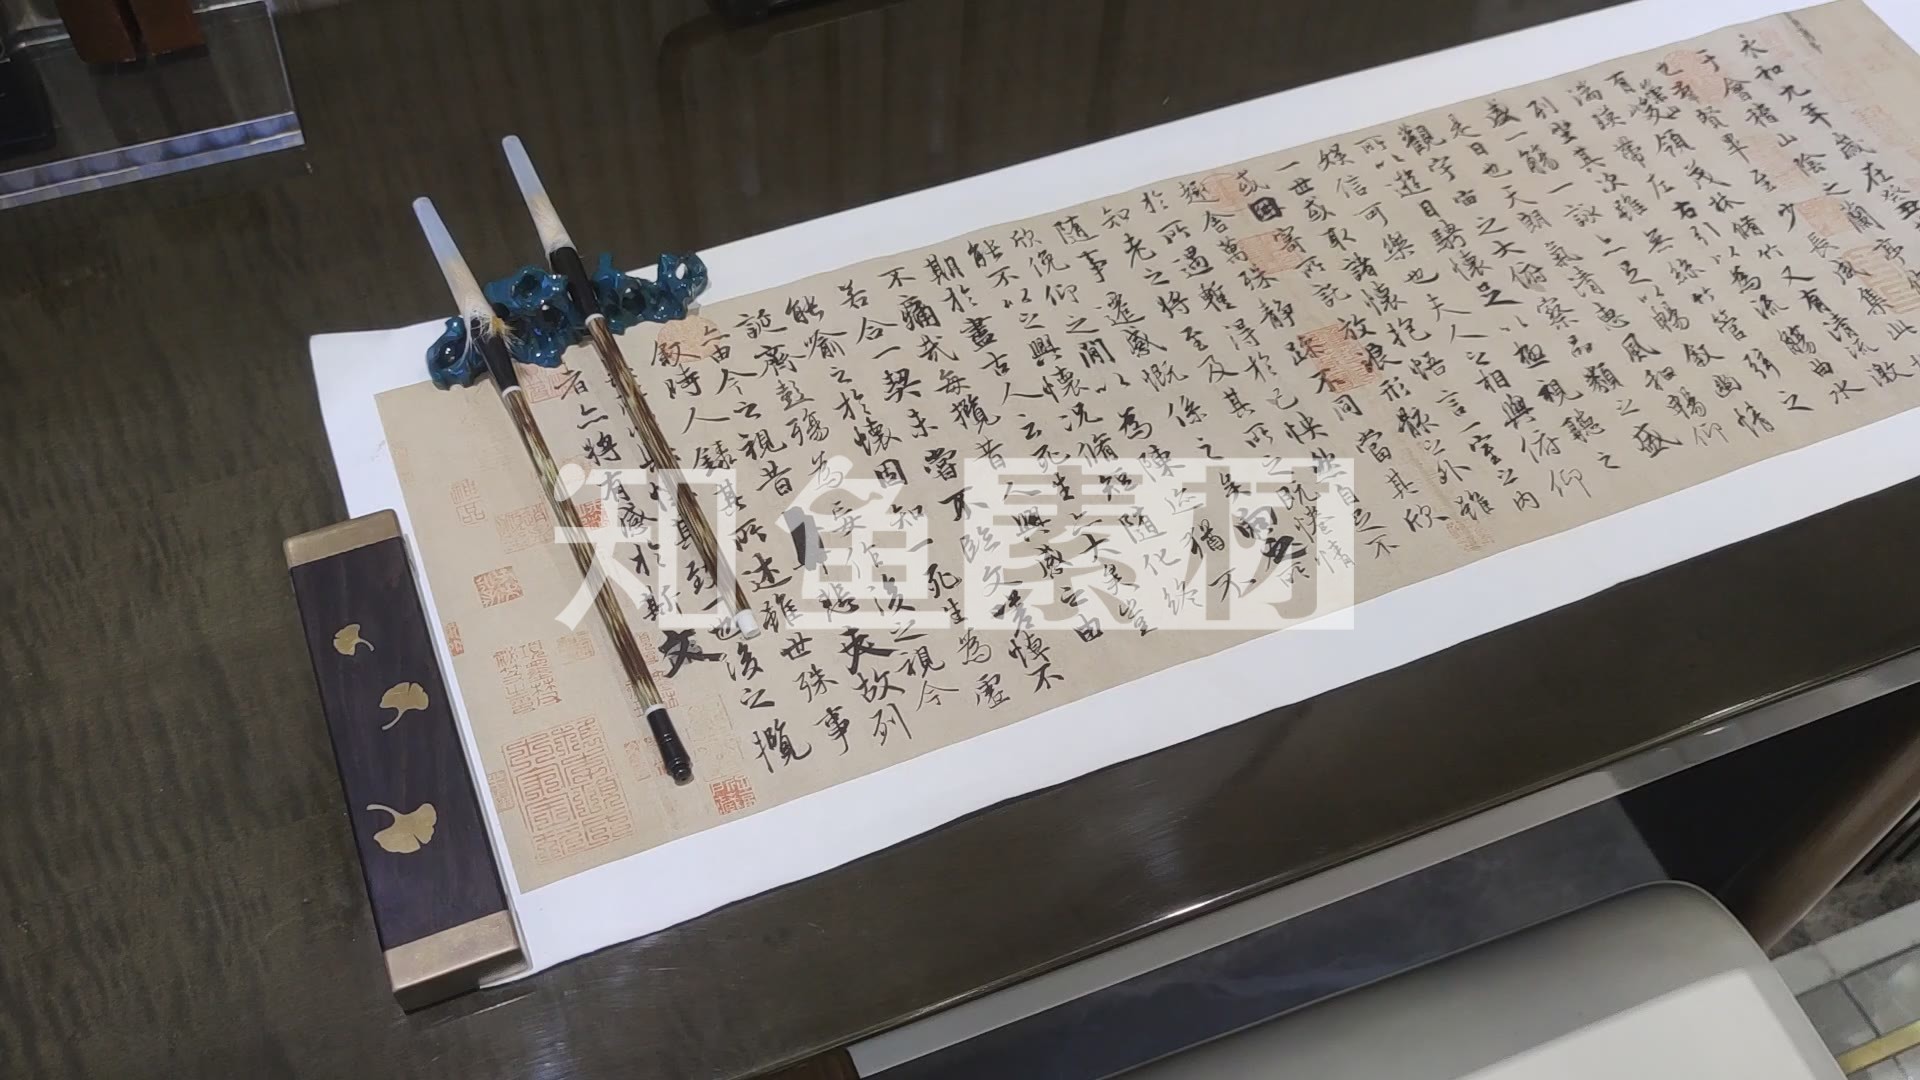 永和九年歲在癸丑
于會稽山陰之蘭亭脩
也群賢畢至少長咸集此
有峻領茂林脩竹又有清流激
湍暎帶左右引以為流觴曲水
列坐其次雖無絲竹管弦之
盛一觴一詠亦足以暢敘幽情
是日也天朗氣清惠風和暢仰
觀宇宙之大俯察品類之盛
所以遊目騁懷足以極視聽之
娛信可樂也夫人之相與俯仰
一世或取諸懷抱悟言一室之內
或因寄所託放浪形骸之外雖
趣舍萬殊靜躁不同當其欣
於所遇暫得於己快然自足不
知老之將至及其所之既惓情
隨事遷感慨係之矣向之所
欣俛仰之間以為陳迹猶不
能不以之興懷況脩短隨化終
期於盡古人云死生亦大矣豈
不痛哉每攬昔人興感之由
若合一契未嘗不臨文嗟悼不
能喻之於懷固知一死生為虛
誕齊彭殤為妄作後之視今
亦由今之視昔悲夫故列
敘時人錄其所述雖世殊事
其致一也後之攬
者亦將有感於斯文
知鱼素材